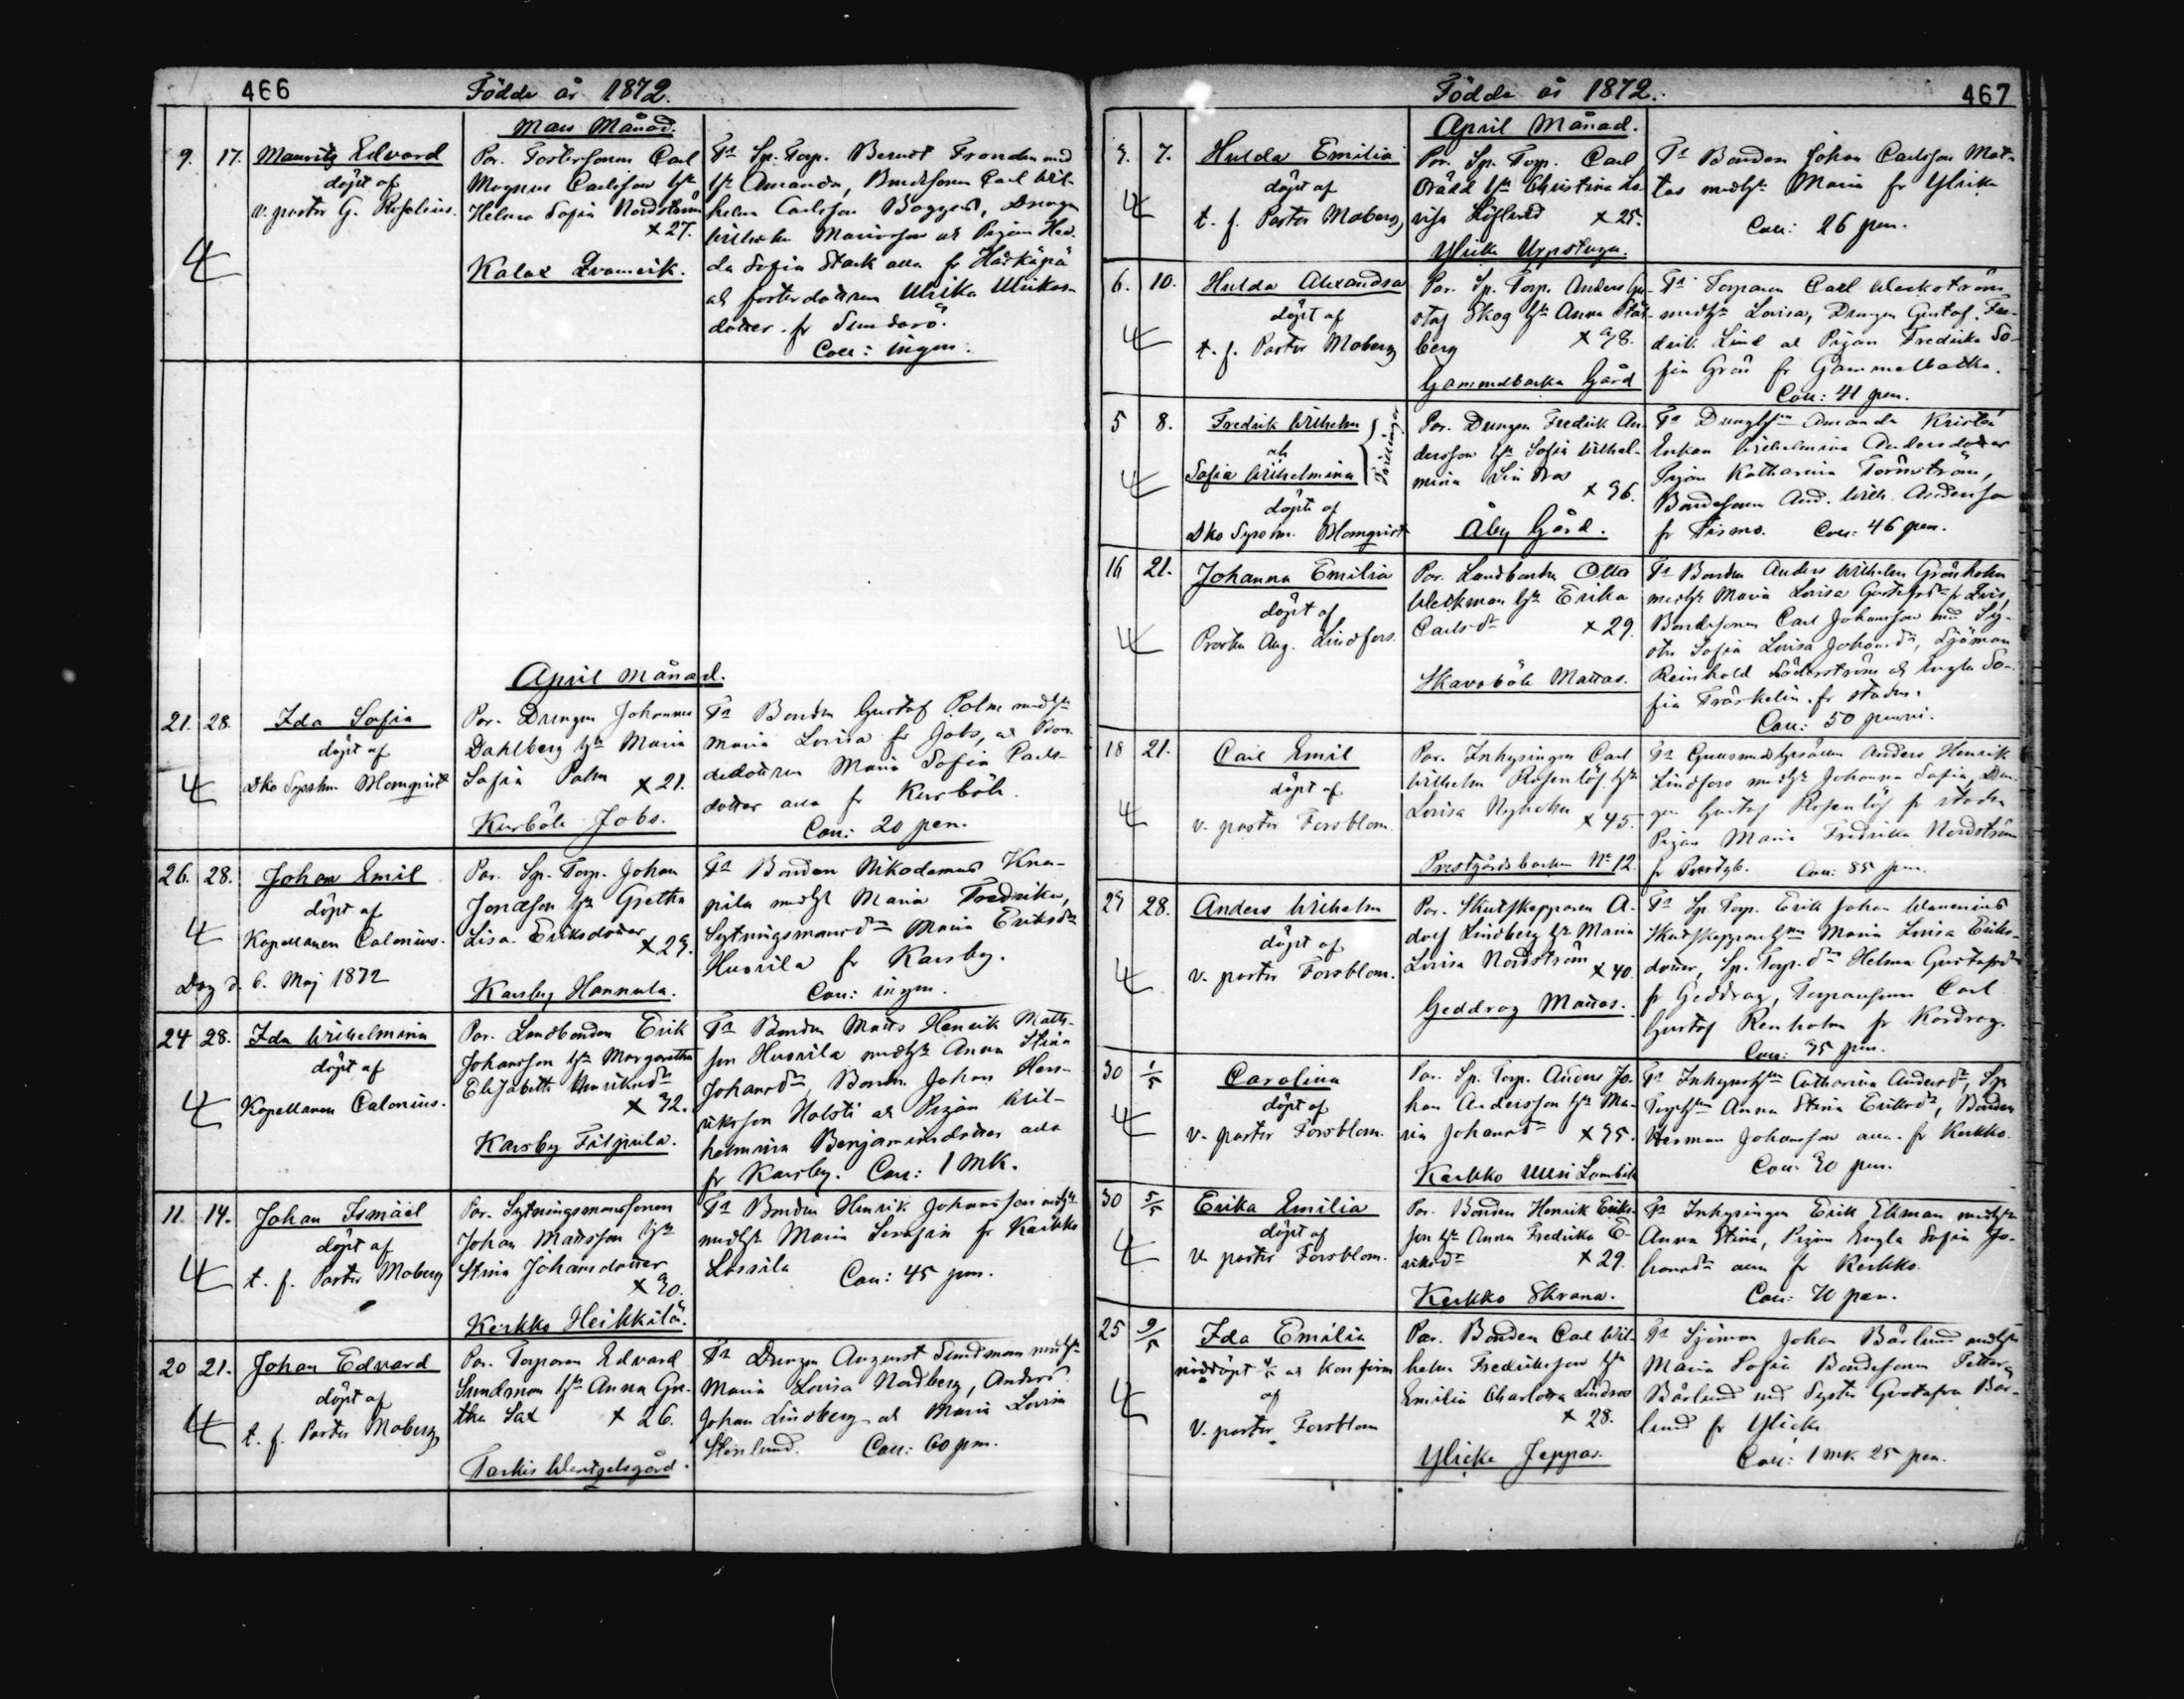 466
Födde år 1872.
Mars Månad.
9. 17. Mauritz Edvard
döpt af
v. pastor G. Roselius.
Par. Fostersonen Carl
Magnus Carlsson hu
Helena Sofia Nordström
x 27.
Kalax
Ts Sp. Torp. Berndt
hu Amanda, Bondesonen Carl Wil-
helm Carlsson Baggas, Drengen
Wilhelm och Pigan Hed-
da Sofia Stark alla fr
och fosterdottren Ulrika Ulrikas-
dotter fr Sundarö.
Coll: ingen.
April Månad.
21. 28. Ida Sofia
döpt af
Sko Sysslm. Blomqvist
Par. Drengen Johannes
Dahlberg hu Maria
Sofia Palm x 21.
Kurböle Jobs.
Ts Bonden Gustaf Palm med hu
Maria Lovisa fr Jobs, och Bon-
dedottren Maria Sofia Carls-
dotter alla fr Kurböle.
Coll: 20 pen.
26. 28. Johan Emil
döpt af
Kapellanen Calonius.
Dog d. 6. Maj 1872
Par. Sp. Torp. Johan
Jonasson hu Gretha
Lisa Eriksdotter
x 29.
Karsby Hannula.
Ts Bonden Nikodemus Kna-
pila med hu Maria Fredrika,
Sytningsmansdn Maria Eriksdn
Huorila fr Karsby.
Coll: ingen.
24 28. Ida Wilhelmina
döpt af
Kapellanen Calonius.
Par. Landbonden Erik
Johansson hu Margaretha
Elisabeth Henriksdn
x 32.
Karsby Filpula.
Ts Bonden Matts Henrik Matts-
son Huorila med hu Anna Stina
Johansdn, Bonden Johan Hen-
riksson Holsti och Pigan Wil-
helmina Benjaminsdotter alla
fr Karsby. Coll: 1 mk.
11. 14. Johan Ismaël
döpt af
t. f. Pastor Moberg
Par. Sytningsmanssonen
Johan Mattsson hu
Stina Johansdotter
x 30.
Kerkko Heikkilä.
Ts Bonden Henrik Johansson med hu
med hu Maria Serafia fr Kerkko
Lassila Coll: 45 pen.
20 21. Johan Edvard
döpt af
t. f. Pastor Moberg
Par. Torparen Edvard
Sundman hu Anna Gre-
tha Sax x 26.
Tarkis Wentzelsgård.
Ts Drengen August Sundman med hu
Maria Lovisa Nordberg, Anders
Johan Lindberg och Maria Lovisa
Stenlund. Coll: 60 pen.
467
Födde år 1872.
April Månad.
3. 7. Hulda Emilia
döpt af
t. f. Pastor Moberg
Par. Sp. Torp. Carl
hu Christina Lo-
visa Löflund x 25.
Ylike Uppstuga.
Ts Bonden Johan Carlsson Mat-
tas med hu Maria fr Ylike
Coll: 26 pen.
6. 10. Hulda Alexandra
döpt af
t. f. Pastor Moberg
Par. Sp. Torp. Anders Gu-
staf Skog hu Anna Stål-
berg x 38.
Gammelbacka Gård
Ts Torparen Carl Weckström
med hu Lovisa, Drengen Gustaf Fre-
drik Lind och Pigan Fredrika So-
fia Grön fr Gammelbacka.
Coll: 41 pen.
5 8. Fredrik Wilhelm
och
Sofia Wilhelmina
Tvillingar
döpte af
Sko Sysslm. Blomqvist
Par. Drengen Fredrik An-
dersson hu Sofia Wilhel-
mina Lindroos
x 36.
Åby Gård.
Ts Drenghun Amanda Kristin
Enkan Wilhelmina Andersdotter
Pigan Katharina Törnström,
Bondesonen And. Wilh. Andersson
fr Tirmo. Coll: 46 pen.
16 21. Johanna Emilia
döpt af
Prosten Aug. Lindfors.
Par. Landbonden Otto
Weckman hu Erika
Carlsdn x 29.
Skavaböle Mattas.
Ts Bonden Anders Wilhelm Grönholm
med hu Maria Lovisa Gustafsdn fr
Bondesonen Carl Johansson med Sy-
ster Sofia Lovisa Johansdn, Sjöman
Reinhold Söderström och Engla So-
fia Träskelin fr staden.
Coll: 50 penni.
18 21. Carl Emil
döpt af
v. pastor Forsblom.
Par. Inhysingen Carl
Wilhelm Rosenlöf hu
Lovisa Nyholm
x 45.
Prestgårdsbacken No 12.
Ts Anders Henrik
Lindfors med hu Johanna Sofia, Dren-
gen Gustaf Rosenlöf fr staden
Pigan Maria Fredrika Nordström
fr Prestgb. Coll: 85 pen.
23 28. Anders Wilhelm
döpt af
v. pastor Forsblom.
Par. Skutskepparen A-
dolf Lindberg hu Maria
Lovisa Nordström
x 40.
Geddrag Mattas.
Ts Sp. Torp. Erik Johan Wanenius
Skutskepparehun Maria Lovisa Eriks-
dotter, Sp. Torp. dn Helena Gustafsdn
fr Geddrag, Torparesonen Carl
Gustaf Renholm fr Kardrag.
Coll: 35 pen.
30 1/5 Carolina
döpt af
v. pastor Forsblom.
Par. Sp. Torp. Anders Jo-
han Andersson hu Ma-
ria Johansdn x 35.
Kerkko Uusi Lambila
Ts Inhyseshun Catharina Andersdn, Sp.
Torphun Anna Stina Eriksdn, Bonden
Herman Johansson alla fr Kerkko.
Coll: 30 pen.
30 5/5 Erika Emilia
döpt af
v. pastor Forsblom.
Par. Bonden Henrik Eriks-
son hu Anna Fredrika E-
riksdn x 29.
Kerkko Skrana.
Ts Inhysingen Erik Ekman med hu
Anna Stina, Pigan Engla Sofia Jo-
hansdn alla fr Kerkko.
Coll: 70 pen.
25 9/5 Ida Emilia
nöddöpt och konfirm
af
v. pastor Forsblom
Par. Bonden Carl Wil-
helm Fredriksson hu
Emilia Charlotta Lindroos
x 28.
Ylike Jeppas.
Ts Sjöman Johan Bärlund med hu
Maria Sofia Bondesonen Petter
Bärlund med Syster Gustafva Bär-
lund fr Ylike
Coll: 1 mk 25 pen.